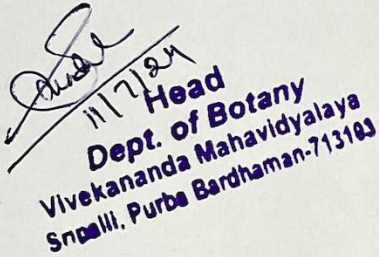 11/7/24
Head
Dept. of Botany
Vivekananda Mahavidyalaya
Sripalli, Purba Bardhaman-713103